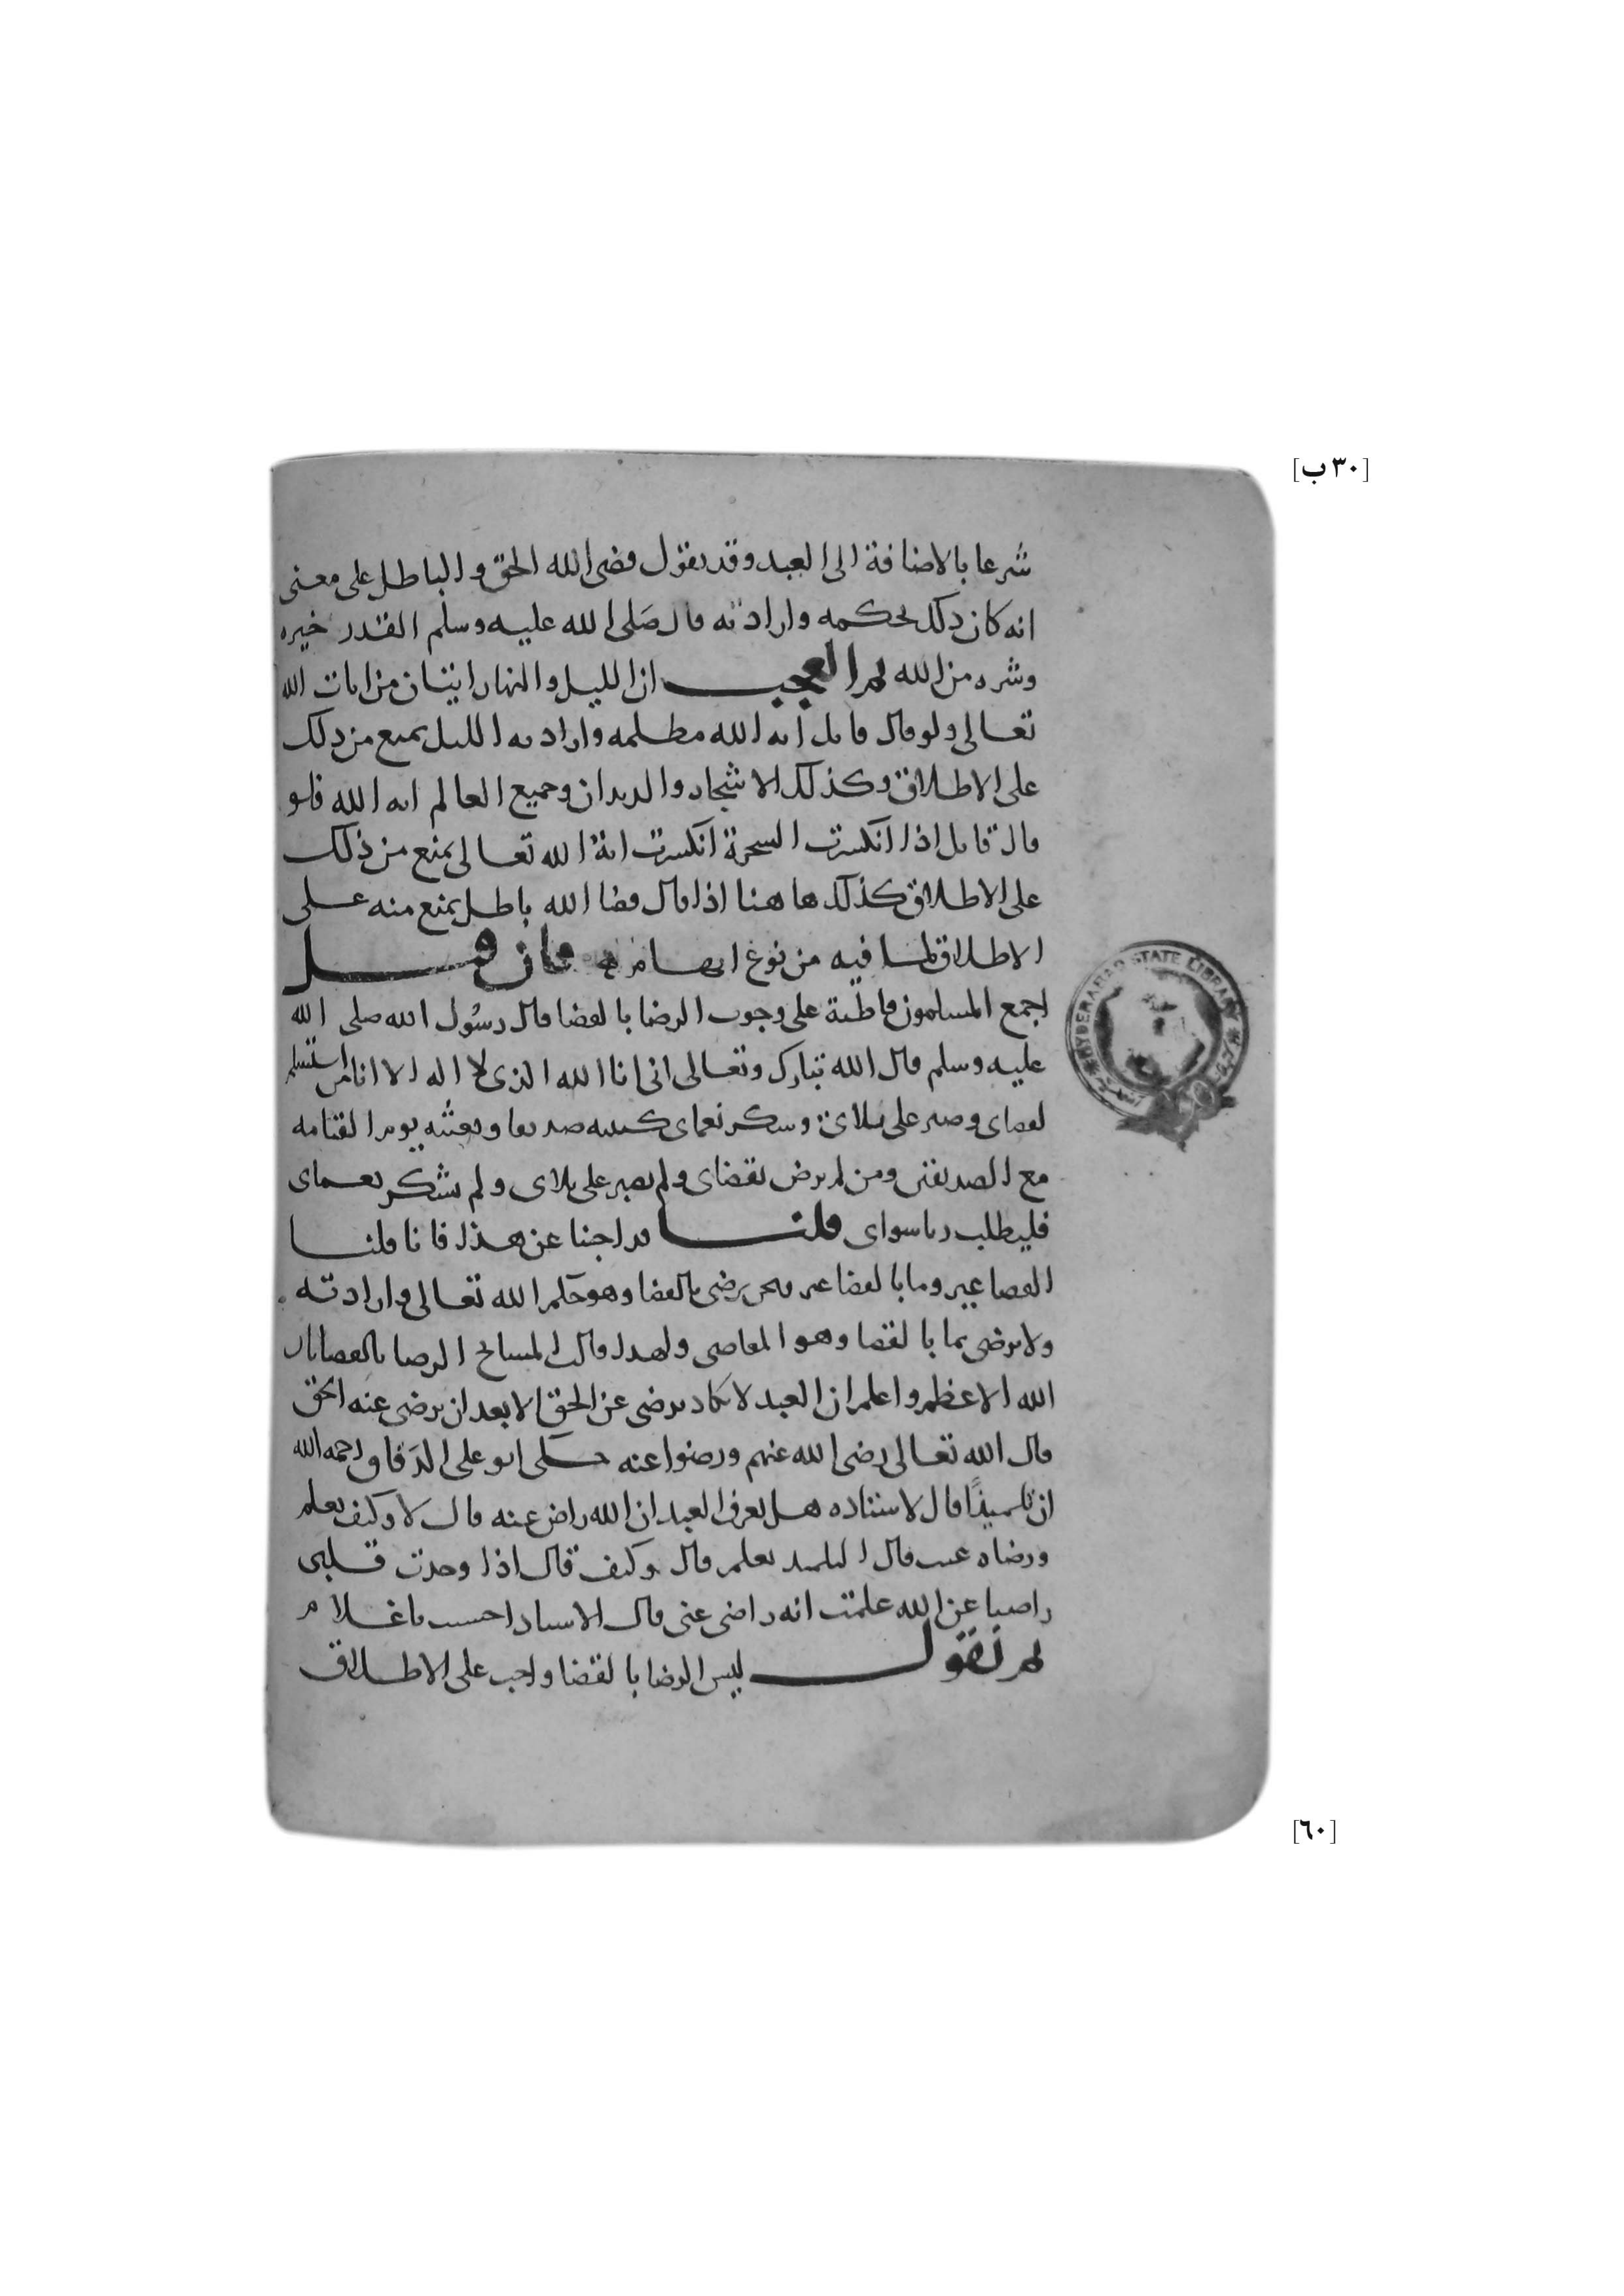 [٣٠ ب]
شرعا بالاضافة الى العبد وقد نقول قضى الله الحق والباطل على معنى
انه كان ذلك بحكمه وارادته قال صَلى الله عليه وسلم القدر خيره
وشره من الله ثم العجب ان الليل والنهار ايتان من ايات الله
تعالى ولو قال قايل اية الله مظلمة واراد به الليل يمنع من ذلك
على الاطلاق وكذلك الاشجار والديدان وجميع العالم اية الله فلو
قال قايل اذا انكسرت الشجرة انكسرت اية الله تعالى يمنع من ذلك
على الاطلاق كذلك ها هنا اذا قال قضا الله باطل يمنع منه على
الاطلاق لما فيه من نوع ايهام فان قيل
اجمع المسلمون قاطبة على وجوب الرضا بالقضا قال رسُول الله صلى الله
عليه وسلم قال الله تبارك وتعالى انى انا الله الذى لا اله الا انا من استسلم
لقضاى وصبر على بلاى وشكر نعماى كتبته صديقا وبعثته يوم القيامه
مع الصديقين ومن لم يرض بقضاى ولم يصبر على بلاى ولم يشكر نعماى
فليطلب ربا سواى قلنا قد اجبنا عن هذا فانا قلنا
القضا غير وما بالقضا غير فنحن نرضى بالقضا وهو حكم الله تعالى وارادته
ولا نرضى بما بالقضا وهو المعاصى ولهذا قالت المشايخ الرضا بالقضا باب
الله الاعظم واعلم ان العبد لا يكاد يرضى عن الحق الا بعد ان يرضى عنه الحق
قال الله تعالى رضى الله عنهم ورضوا عنه حكى ابو على الدقاق رحمه الله
ان تلميذًا قال لاستاده هل يعرف العبد ان الله راض عنه قال لا وكيف يعلم
ورضاه غيب قال التلميد يعلم قال وكيف قال اذا وجدت قلبى
راضيا عن الله علمت انه راضى عنى قال الاستاد احسنت يا غلام
ثم نقول ليس الرضا بالقضا واجب على الاطلاق
HYDERABAD STATE LIBRARY
[٦٠]